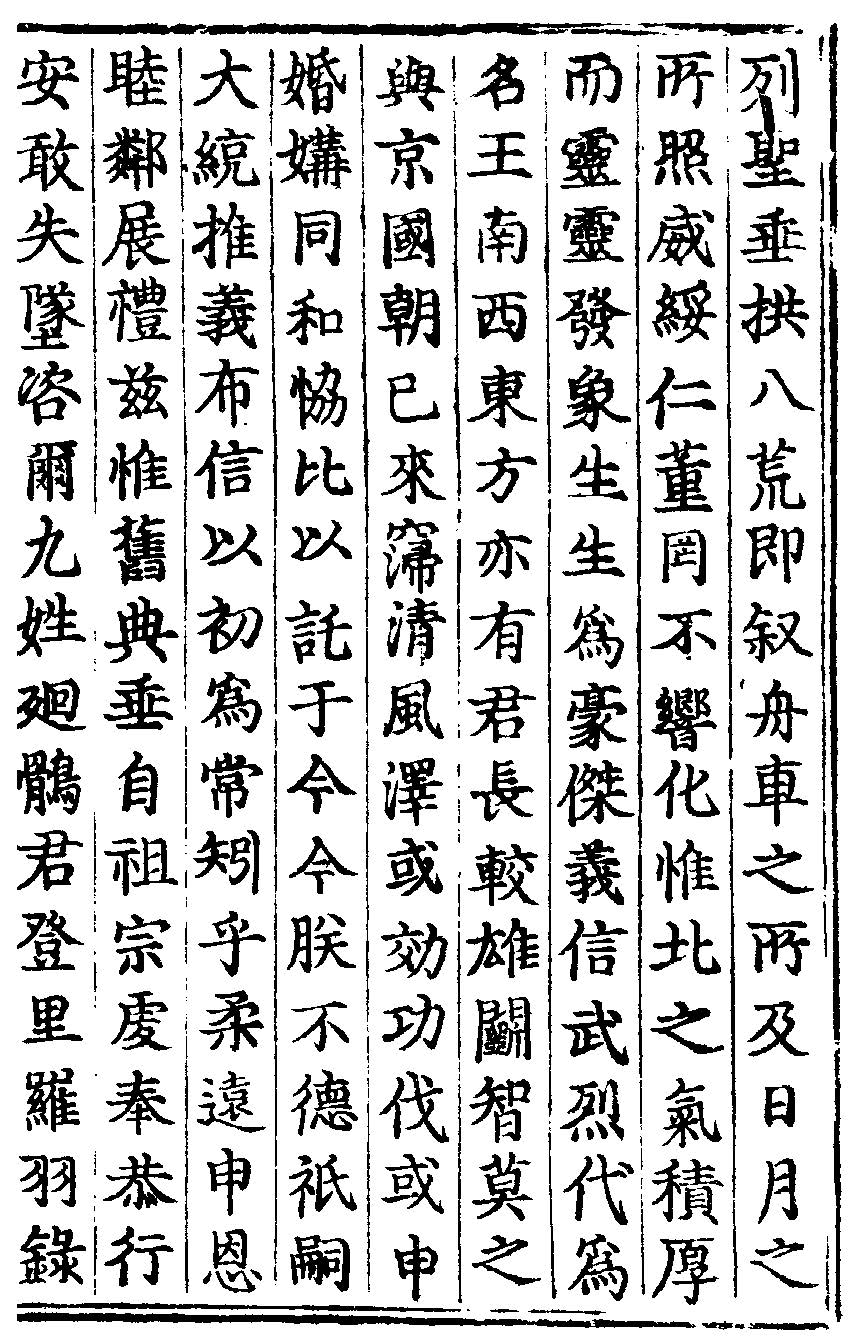 列聖垂拱八荒即叙舟車之所及日月之
所照威綏仁董罔不響化惟北之氣積厚
而靈靈發象生生為豪傑義信武烈代為
名王南西東方亦有君長較雄鬭智莫之
與京國朝已來霈清風澤或効功伐或申
婚媾同和恊比以託于今今朕不德祇嗣
大統推義布信以初為常矧乎柔遠申恩
睦鄰展禮兹惟舊典垂自祖宗虔奉恭行
安敢失墜咨爾九姓廻鶻君登里羅羽錄